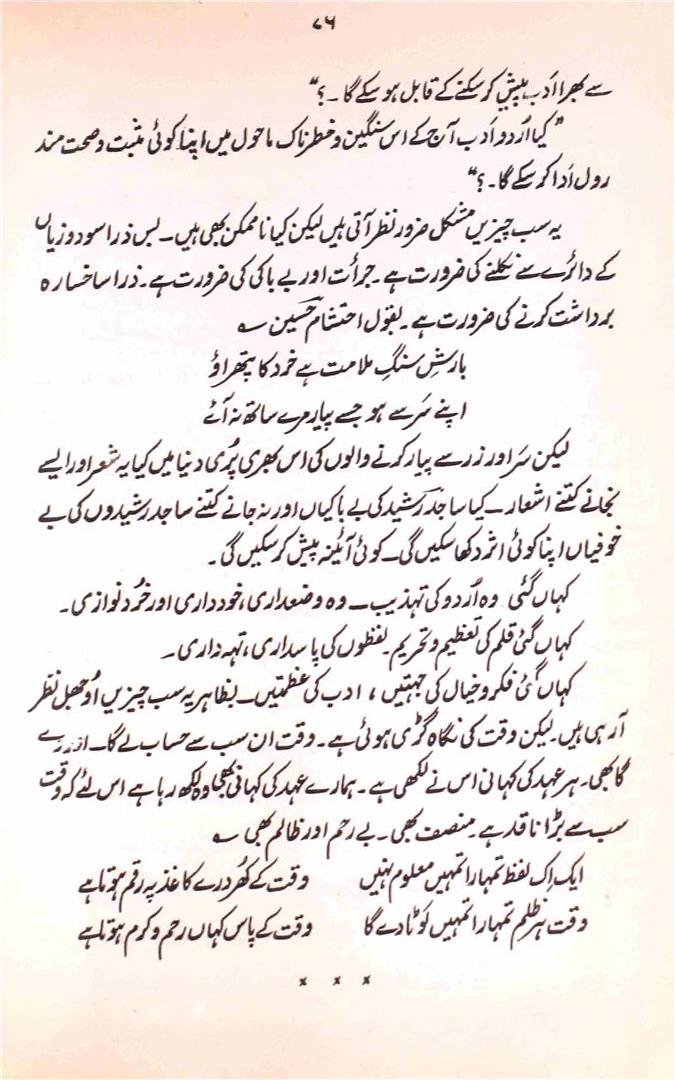 ۷۶
سے بھرا اَدب پیش کر سکنے کے قابل ہو سکے گا ۔؟“
”کیا اُردو اَدب آج کے اس سنگین و خطرناک ماحول میں اپنا کوئی مثبت و صحت مند
رول اَدا کر سکے گا۔؟“
یہ سب چیزیں مشکل ضرور نظر آتی ہیں لیکن کیا ناممکن بھی ہیں۔ بس ذرا سود و زیاں
کے دائرے سے نکلنے کی ضرورت ہے۔ جرأت اور بے باکی کی ضرورت ہے۔ ذرا سا خسارہ
برداشت کرنے کی ضرورت ہے۔ بقول احتشام حسین ؎
بارشِ سنگِ ملامت ہے خرد کا پتھراؤ
اپنے سَر سے ہو جسے پیار مرے ساتھ نہ آئے
لیکن سَر اور زر سے پیار کرنے والوں کی اس بھری پُری دنیا میں کیا یہ شعر اور ایسے
نجانے کتنے اشعار۔ کیا ساجد رشید کی بے باکیاں اور نہ جانے کتنے ساجد رشیدوں کی بے
خوفیاں اپنا کوئی اثر دکھا سکیں گی۔ کوئی آئینہ پیش کر سکیں گی۔
کہاں گئی وہ اُردو کی تہذیب۔ وہ وضعداری، خودداری اور خُرد نوازی۔
کہاں گئی قلم کی تعظیم و تحریم۔ لفظوں کی پاسداری، تہہ داری۔
کہاں گئی فکر و خیال کی جہتیں، ادب کی عظمتیں۔ بظاہر یہ سب چیزیں اوجھل نظر
آ رہی ہیں۔ لیکن وقت کی نگاہ گڑی ہوئی ہے۔ وقت ان سب سے حساب لے گا۔ اور دے
گا بھی۔ ہر عہد کی کہانی اس نے لکھی ہے۔ ہمارے عہد کی کہانی بھی وہ لکھ رہا ہے اس لئے کہ وقت
سب سے بڑا ناقد ہے۔ منصف بھی۔ بے رحم اور ظالم بھی ؎
ایک اِک لفظ تمہارا تمہیں معلوم نہیں وقت کے کھُردرے کاغذ پہ رقم ہوتا ہے
وقت ہر ظلم تمہارا تمہیں لَوٹا دے گا وقت کے پاس کہاں رحم و کرم ہوتا ہے
× × ×